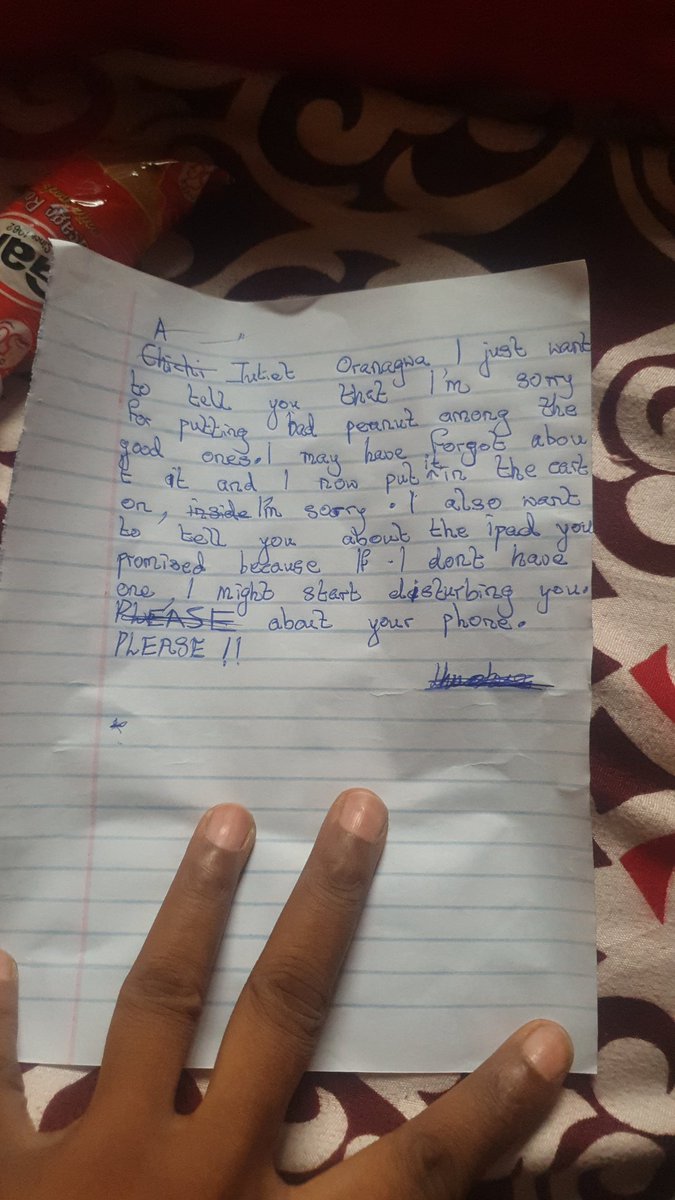 Since 1982
A
Chichi Juliet Oranagwa I just want
to tell you that I'm sorry
for putting bad peanut among the
good ones. I may have forgot abou
t it and I now put it in the cart
on, inside I'm sorry. I also want
to tell you about the ipad you
promised because If I dont have
one, I might start disturbing you.
PLEASE about your phone.
PLEASE !!